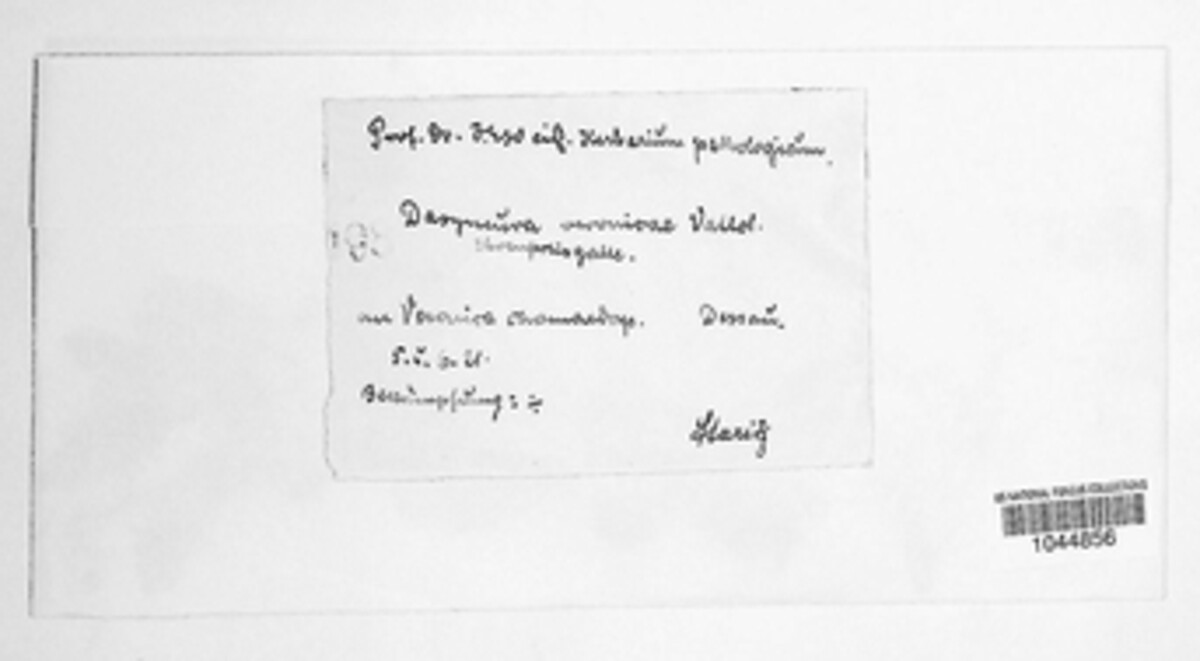 Prof. Dr. eich. Herbarium pathologicum.
Dasyneura veronicae Vallot.
galle.
an Veronica chamaedrys. Dessau.
5. 6. 21.
Bekämpfung: ÷
Staritz
US NATIONAL FUNGUS COLLECTIONS
1044856